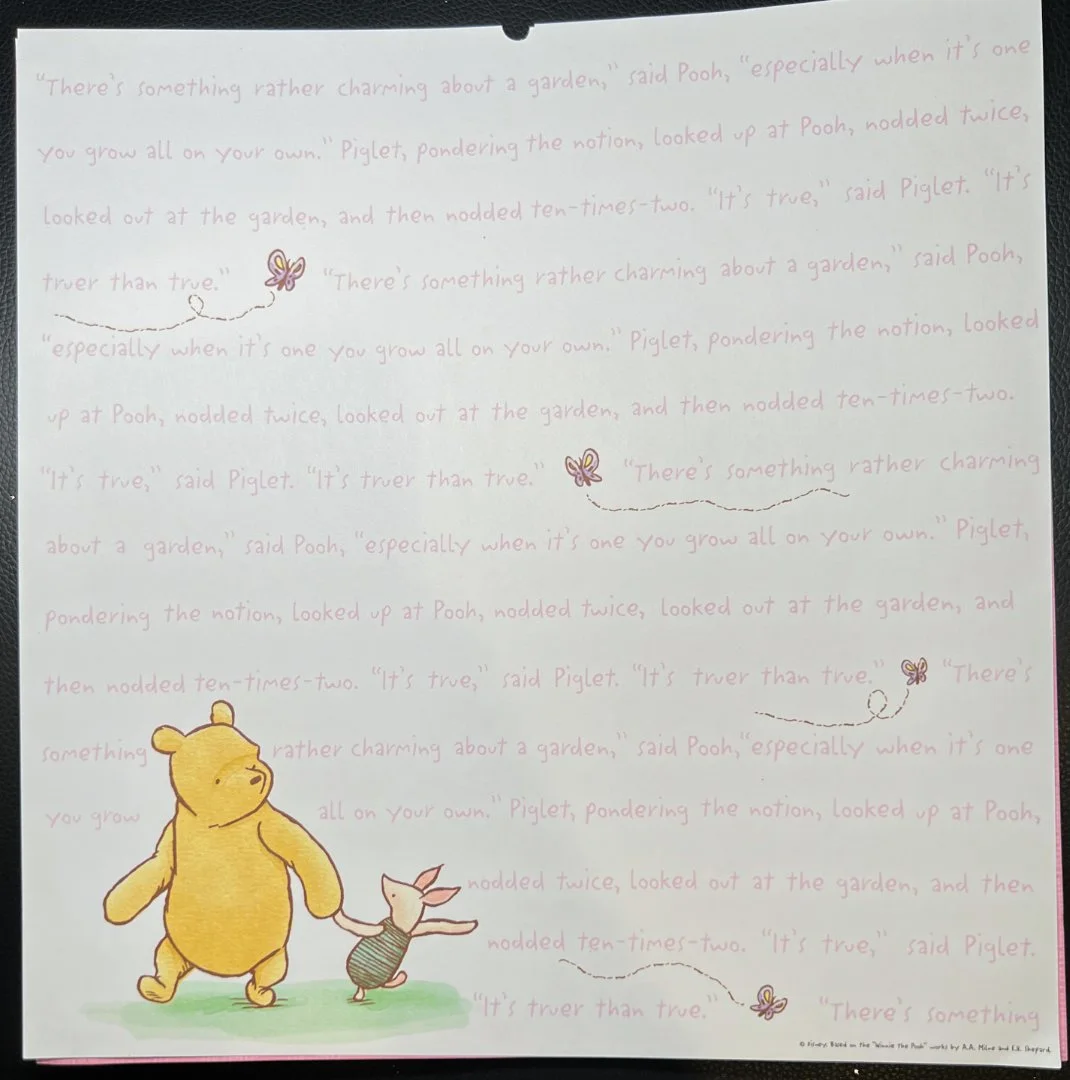 "There's something rather charming about a garden," said Pooh, "especially when it's one
you grow all on your own." Piglet, pondering the notion, looked up at Pooh, nodded twice,
looked out at the garden, and then nodded ten-times-two. "It's true," said Piglet. "It's
truer than true." "There's something rather charming about a garden," said Pooh,
"especially when it's one you grow all on your own." Piglet, pondering the notion, looked
up at Pooh, nodded twice, looked out at the garden, and then nodded ten-times-two.
"It's true," said Piglet. "It's truer than true." "There's something rather charming
about a garden," said Pooh, "especially when it's one you grow all on your own." Piglet,
pondering the notion, looked up at Pooh, nodded twice, looked out at the garden, and
then nodded ten-times-two. "It's true," said Piglet. "It's truer than true." "There's
something rather charming about a garden," said Pooh, "especially when it's one
you grow all on your own." Piglet, pondering the notion, looked up at Pooh,
nodded twice, looked out at the garden, and then
nodded ten-times-two. "It's true," said Piglet.
"It's truer than true." "There's something
© Disney. Based on the "Winnie the Pooh" works by A.A. Milne and E.H. Shepard.